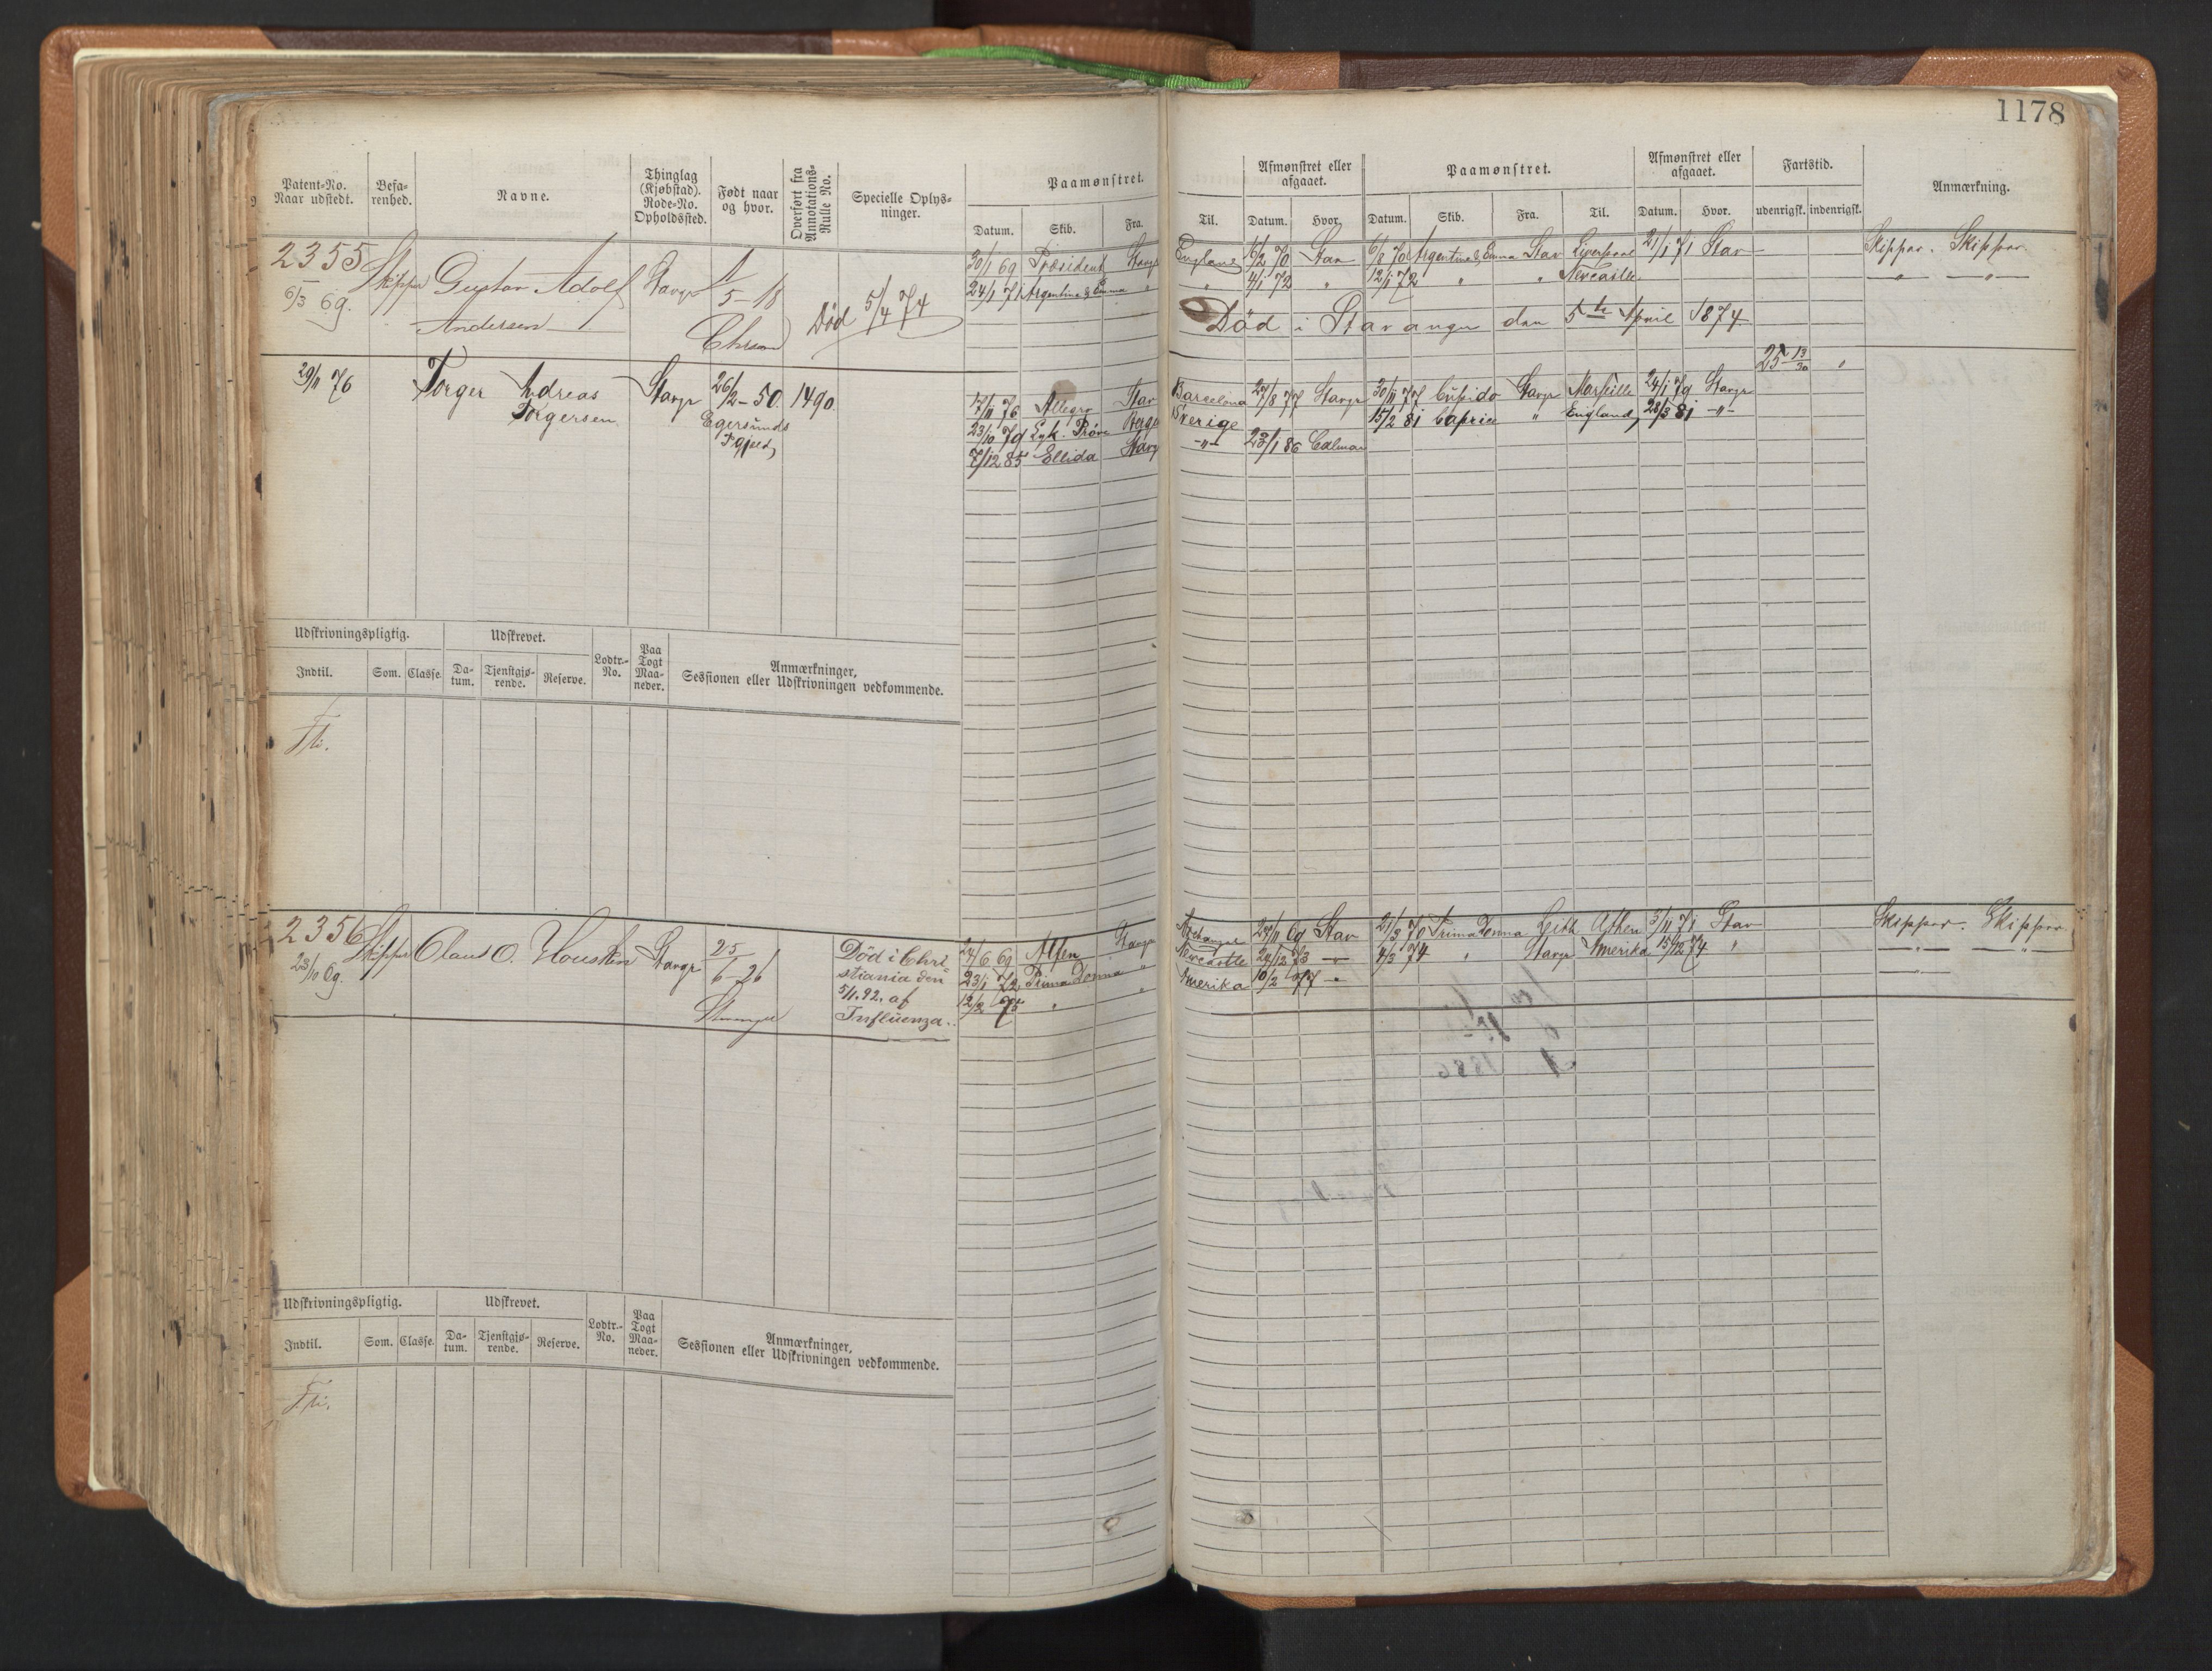 1178
Patent-No. Naar udstedt.
Befarenhed.
Navne.
Thinglag (Kjøbstad). Rode-No. Opholdssted.
Født naar og hvor.
Overført fra Annotations-Rulle No.
Specielle Oplysninger.
Paamønstret.
Datum. Skib. Fra. Til.
Afmønstret eller afgaaet.
Datum. Hvor.
Paamønstret.
Datum. Skib. Fra. Til.
Afmønstret eller afgaaet.
Datum. Hvor.
Fartstid.
udenrigsk. indenrigsk.
Anmærkning.
2355 Skipper Gustav Adolf Stavgr
6/3 69. Andersen
5-18
Død 5/4 74
30/1 69 Præsident Stavgr England 16/2 70 Stav 6/8 70 Argentine & Emma Stav Liverpool 21/1 71 Stav Skipper. Skipper.
24/1 71 Argentine & Emma " " 4/1 72 " 12/1 72 " " Newcastle
Død i Stavanger den 5te April 1874
25 13/30 "
29/11 76 Torger Andreas Stavgr 26/2-50 1490
Torgersen Egersunds
17/11 76 Allegro Stav Barcelona 27/8 77 Stavgr 30/11 77 Cupido Stavgr Marseille 24/1 79 Stavgr
23/10 79 Prøve Sverige 15/2 81 Caprice " England 28/3 81 -"-
7/12 85 Ellida Stavg -"- 23/1 86 Calmar
Udskrivningspligtig. Udskrevet.
Indtil. Som. Classe. Datum. Tjenstgjørende. Reserve. Lodtr.-No. Paa Togt Maaneder.
Anmærkninger, Sessionen eller Udskrivningen vedkommende.
2356 Skipper Claus O. Housken Stavgr 25/6-26
23/10 69. Stavanger
Død i Christiania den
5/1.92. af
Influenza.
24/6 69 Alfen Stavgr Archangel 24/11 69 Stav 21/3 70 Prima Donna Leith Athen 3/11 71 Stav Skipper. Skipper.
23/1 72 Prima Donna " Newcastle 24/12 73 " 4/3 74 " Stavgr Amerika 15/12 74 "
12/2 75 " " Amerika 10/2 77 "
Udskrivningspligtig. Udskrevet.
Indtil. Som. Classe. Datum. Tjenstgjørende. Reserve. Lodtr.-No. Paa Togt Maaneder.
Anmærkninger, Sessionen eller Udskrivningen vedkommende.